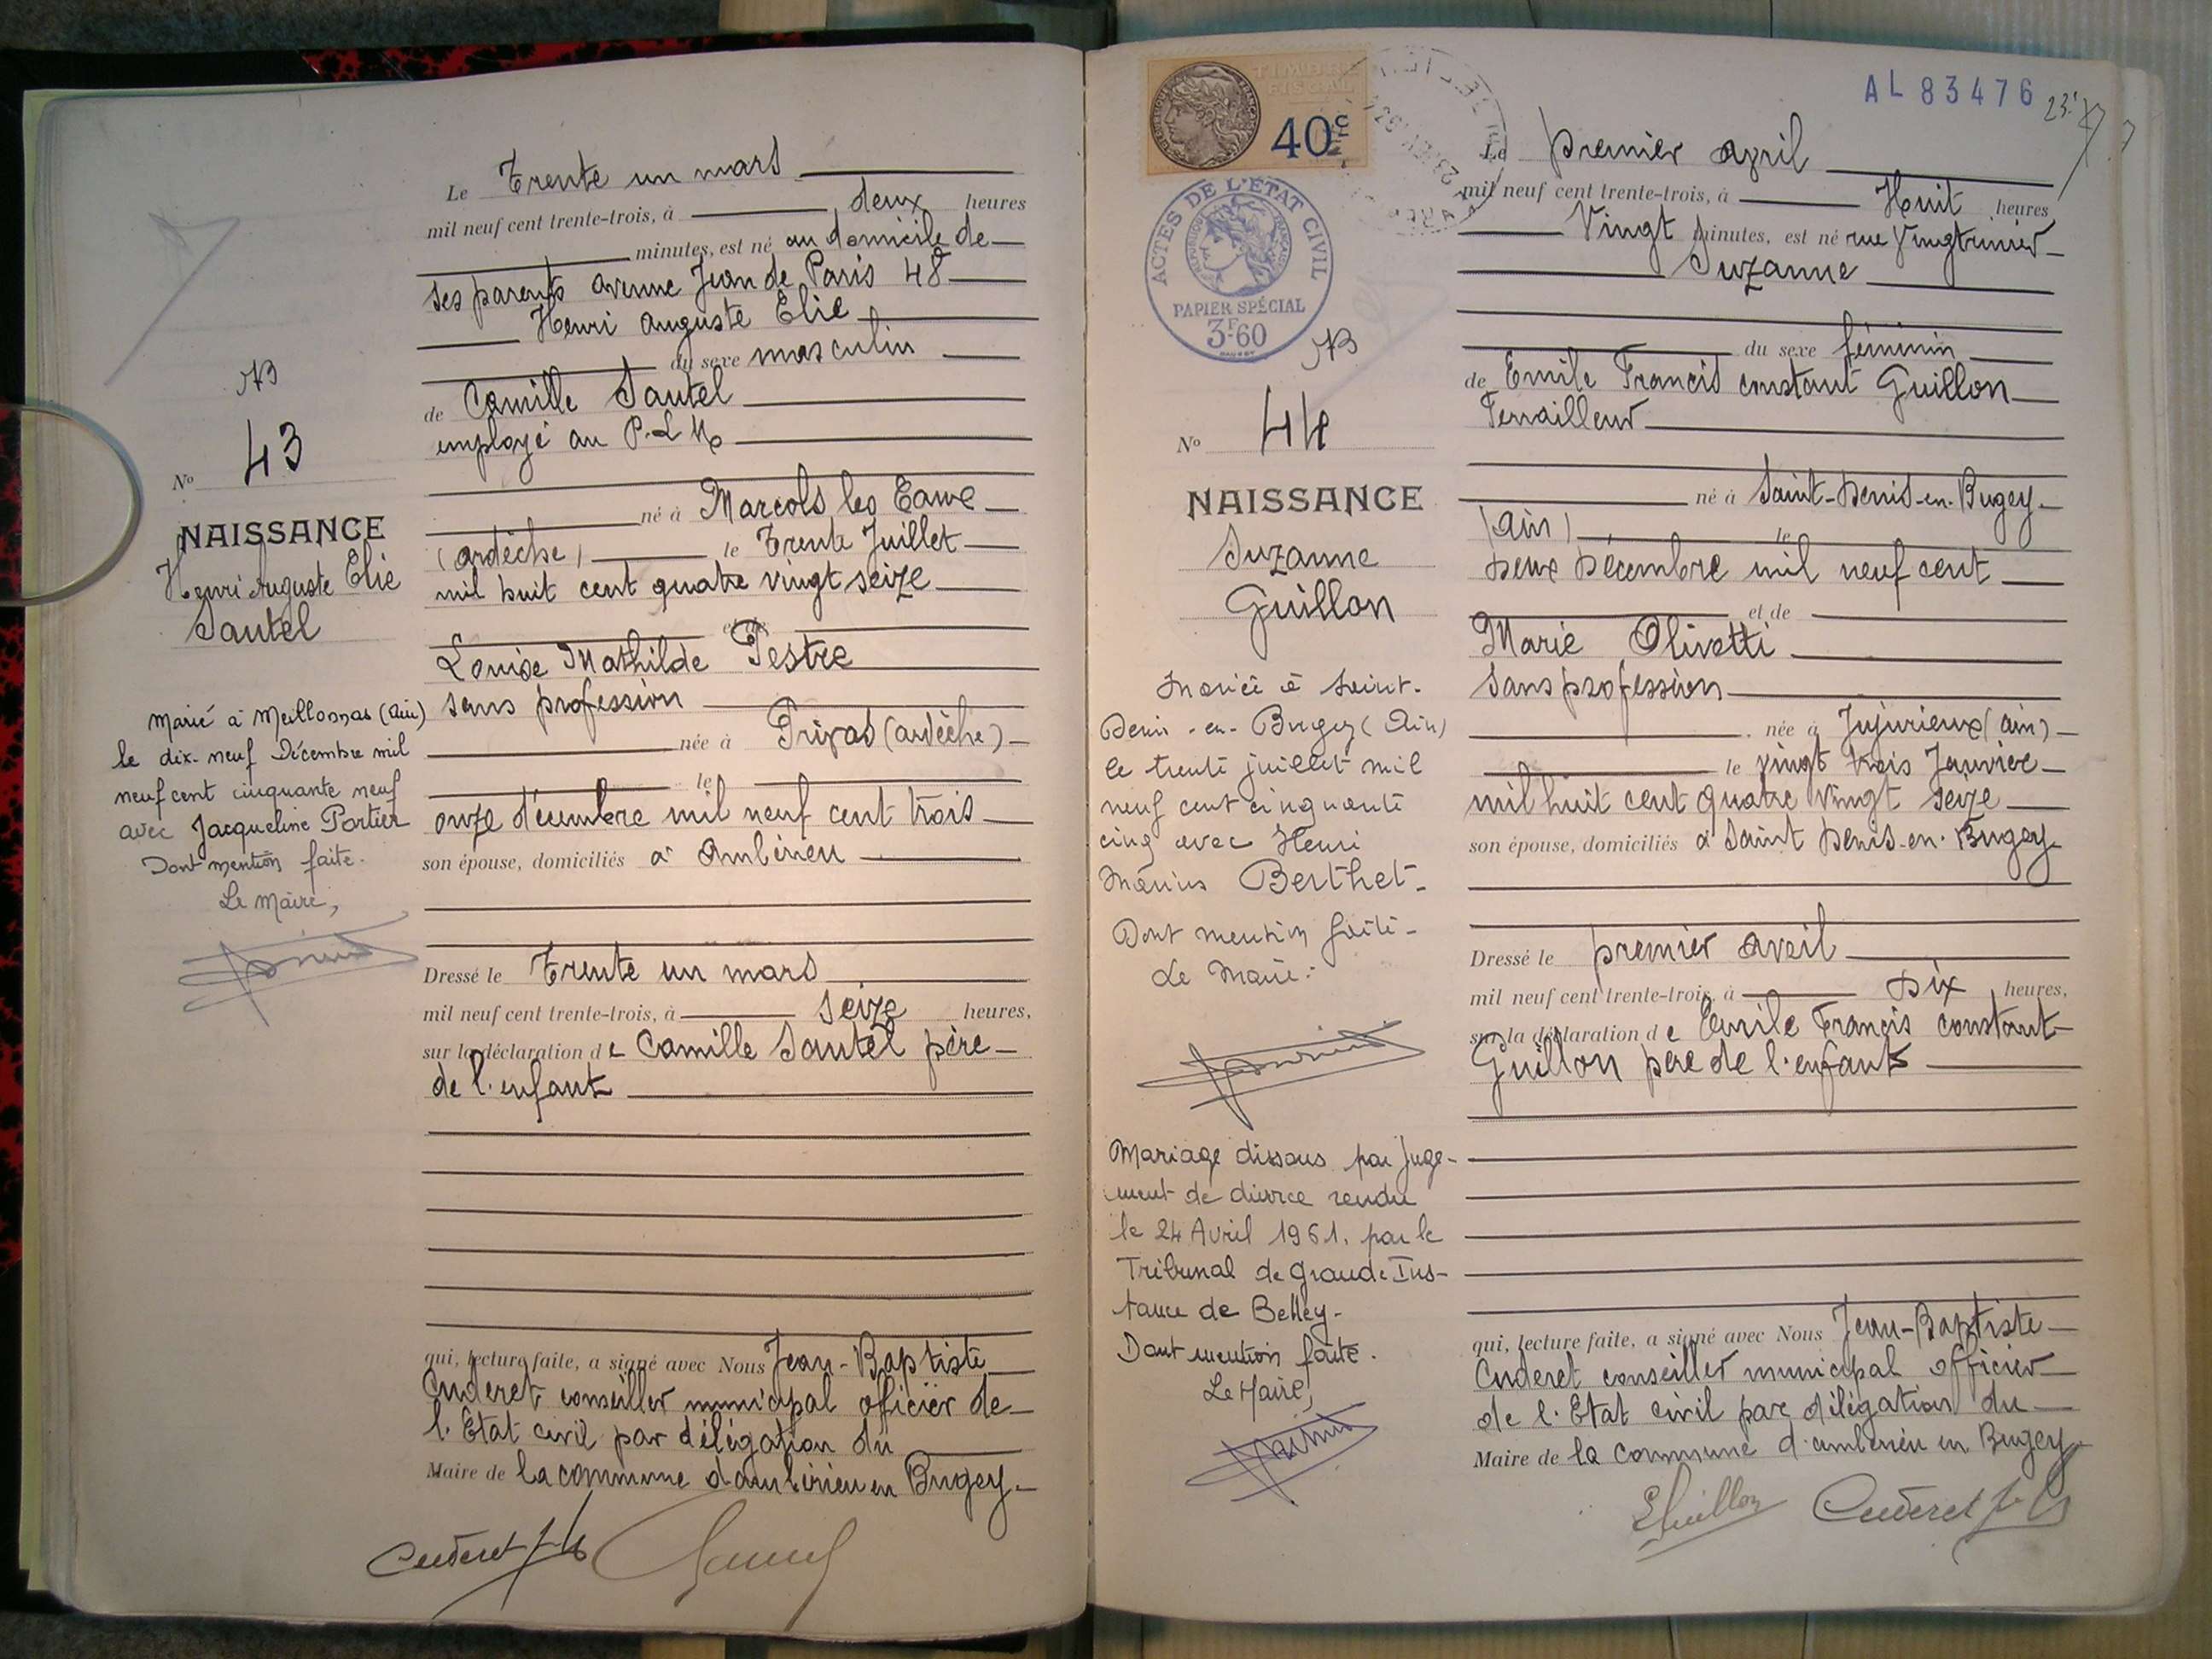 Le Trente un mars
mil neuf cent trente-trois, à deux heures
minutes, est né au domicile de
ses parents avenue Jean de Paris 48
Henri Auguste Elie
du sexe masculin
de Camille Sautel
employé au P.L.M
né à Marcols les Eaux
(ardèche) le Trente Juillet
mil huit cent quatre vingt seize
et de
Louise Mathilde Testre
sans profession
née à Privas (ardèche)
le
onze décembre mil neuf cent trois
son épouse, domiciliés à Ambérieu
Dressé le Trente un mars
mil neuf cent trente-trois, à seize heures,
sur la déclaration de Camille Sautel père
de l'enfant
qui, lecture faite, a signé avec Nous Jean-Baptiste
Cuderet conseiller municipal officier de
l'Etat civil par délégation du
Maire de la commune d'ambérieu en Bugey
Cuderet
NB
No 43
NAISSANCE
Henri Auguste Elie
Sautel
Marié à Meillonnas (Ain)
le dix-neuf Décembre mil
neuf cent cinquante neuf
avec Jacqueline Portier
Dont mention faite.
Le Maire,
TIMBRE
FISCAL
40c
ACTES DE L'ÉTAT CIVIL
RÉPUBLIQUE FRANÇAISE
PAPIER SPÉCIAL
3F60
NB
No 44
NAISSANCE
Suzanne
Guillon
Mariée à Saint-
Denis-en-Bugey (Ain)
le trente juillet mil
neuf cent cinquante
cinq avec Henri
Marius Berthet-
Dont mention faite-
Le Maire:
Mariage dissous par juge-
ment de divorce rendu
le 24 Avril 1961. par le
Tribunal de Grande Ins-
tance de Belley-
Dont mention faite.
Le Maire,
AL 83476
Le premier avril
mil neuf cent trente-trois, à Huit heures
Vingt minutes, est né rue Vingtrinier
Suzanne
du sexe féminin
de Emile Francis constant Guillon
Ferrailleur
né à Saint-Denis-en-Bugey
(ain) le
Deux Décembre mil neuf cent
et de
Marie Olivetti
sans profession
née à Jujurieux (ain)
le vingt trois Janvier
mil huit cent quatre vingt seize
son épouse, domiciliés à Saint Denis-en-Bugey
Dressé le premier avril
mil neuf cent trente-trois, à Dix heures,
sur la déclaration de Emile Francis constant
Guillon père de l'enfant
qui, lecture faite, a signé avec Nous Jean-Baptiste
Cuderet conseiller municipal officier
de l'Etat civil par délégation du
Maire de la commune d'ambérieu en Bugey
EGuillon Cuderet